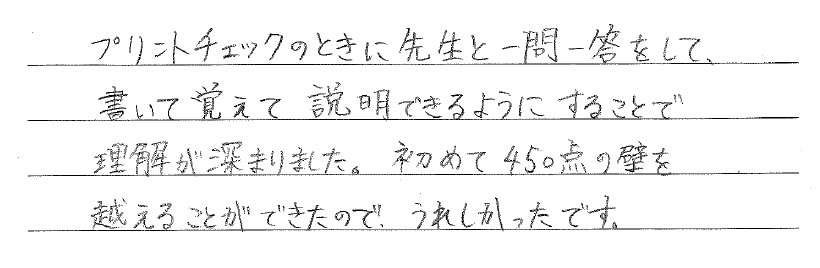 プリントチェックのときに先生と一問一答をして、
書いて覚えて説明できるようにすることで
理解が深まりました。初めて450点の壁を
越えることができたので、うれしかったです。